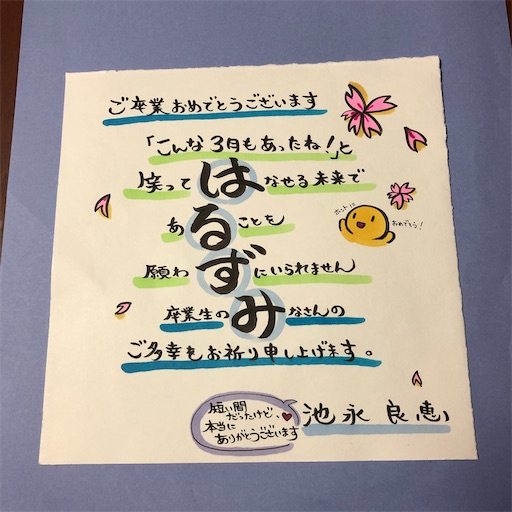 ご卒業おめでとうございます
「こんな3月もあったね!」と
笑ってはなせる未来で
あることを
願わずにいられません
卒業生のみなさんの
ご多幸をお祈り申し上げます。
ホントに
おめでとう!
短い間
だったけど、
本当に
ありがとうございます
池永良恵